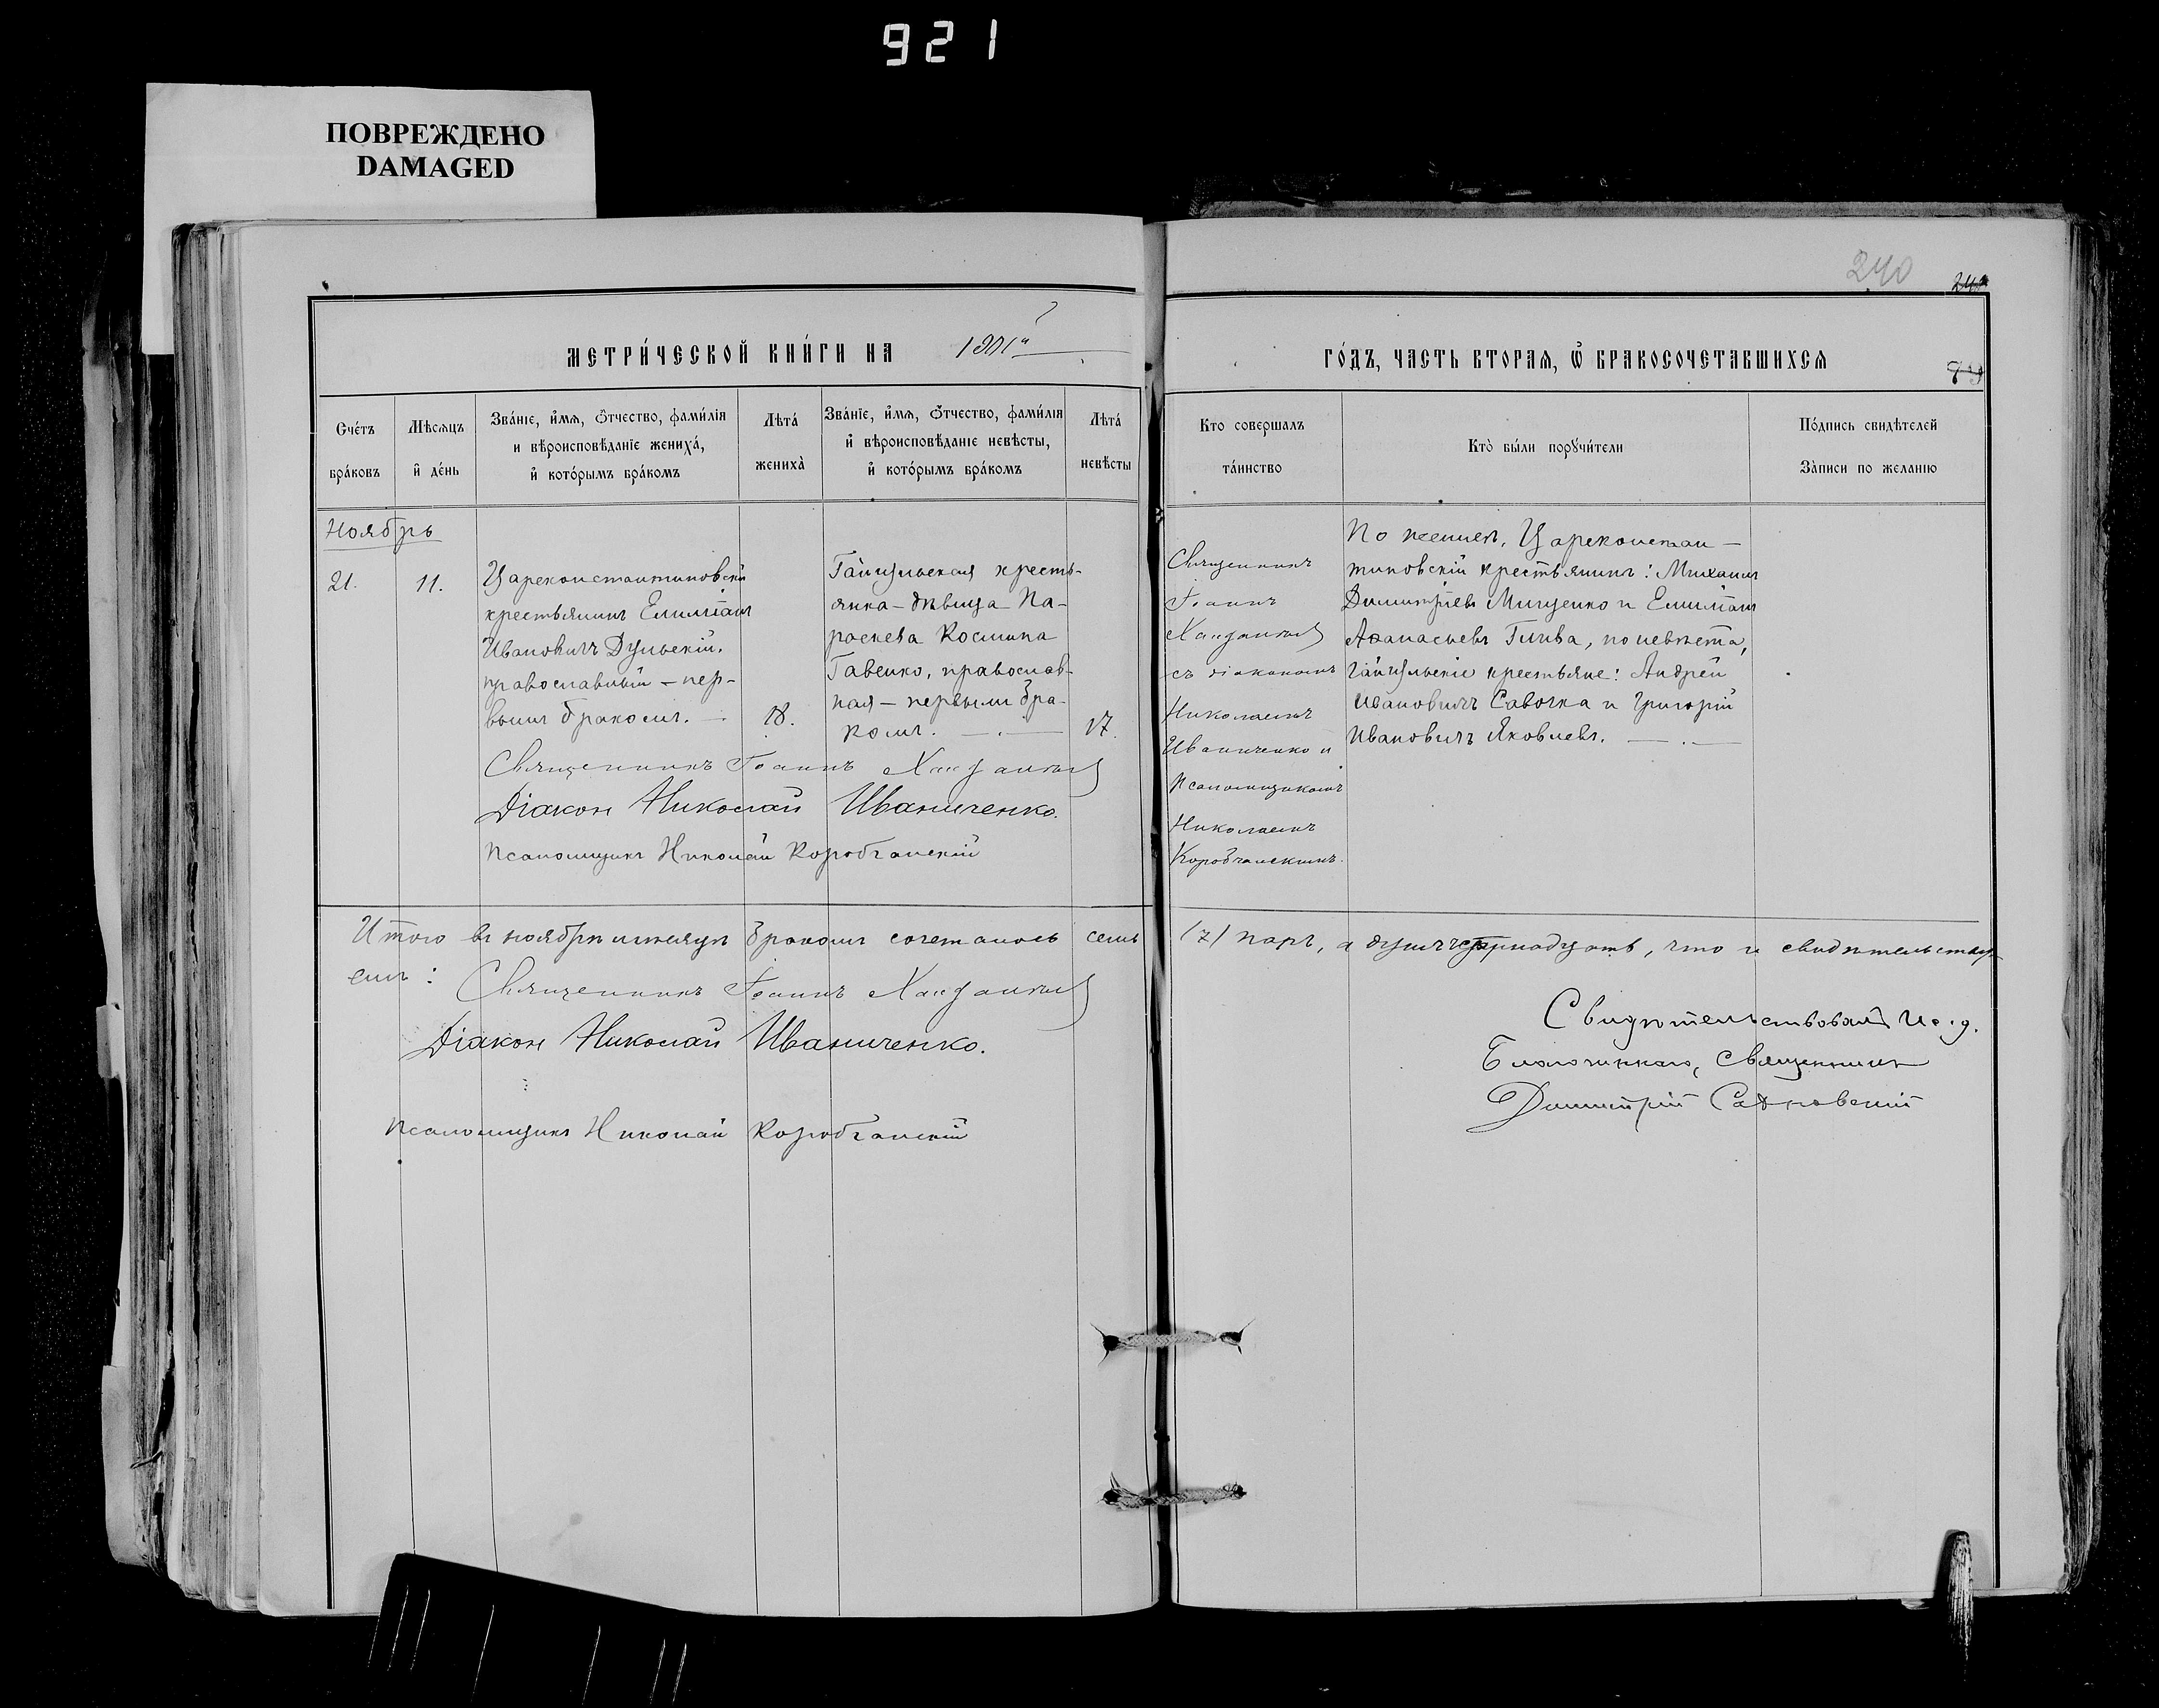 921
ПОВРЕЖДЕНО
DAMAGED
240
МЕТРИ́ЧЕСКОЙ КНИ́ГИ НА 1901й
ГО́ДЪ, ЧАСТЬ ВТОРАѦ, Ѡ҆ БРАКОСОЧЕТАВШИХСѦ
Сче́тъ
бра́ковъ
Мѣсѧцъ
и҆ де́нь
Зва́нїе, и҆мѧ, ѻ҆́тчество, фами́лїѧ
и вѣроисповѣданїе жениха́,
и҆ кото́рымъ бра́комъ
Лѣта́
жениха̀
Зва́нїе, и҆мѧ, ѻ҆́тчество, фами́лїѧ
и҆ вѣроисповѣданїе невѣсты,
и҆ кото́рымъ бра́комъ
Лѣта́
невѣсты
Кто совершалъ
та́инство
Кто̀ бы́ли порꙋчи́тели
По́дпись свидѣтелей
За̀писи по желанїю
Ноябрь
21.
11.
Цареконстантиновскій
крестьянинъ Емиліанъ
Ивановичъ Дульскій.
православный – пер-
вымъ бракомъ. —
18.
Гайчульская кресть-
янка – дѣвица Па-
раскева Космина
Гавенко, православ-
ная – первымъ бра-
комъ. —.—
17.
Священникъ
Іоаннъ
съ діакономъ
Николаемъ
Иваниченко и
псаломщикомъ
Николаемъ
Коробчанскимъ.
По женихѣ, Цареконстан-
тиновскій крестьянинъ: Михаилъ
Димитріевъ Мищенко и Емиліанъ
Аѳанасьевъ Глива, по невѣстѣ,
гайчульскіе крестьяне: Андрей
Ивановичъ Савочка и Григорій
Ивановичъ Яковлевъ. —.—
Священникъ Іоаннъ
Діаконъ Николай Иваниченко.
Псаломщикъ Николай Коробчанскій
Итого въ ноябрѣ мѣсяцѣ бракомъ сочеталось семь /7/ паръ, а душъ четырнадцать, что и свидѣтельству-
емъ:
Священникъ Іоаннъ
Діаконъ Николай Иваниченко.
Псаломщикъ Николай Коробчанскій
Свидѣтельствовалъ И. д.
Благочиннаго, Священникъ
Димитрій Садковскій